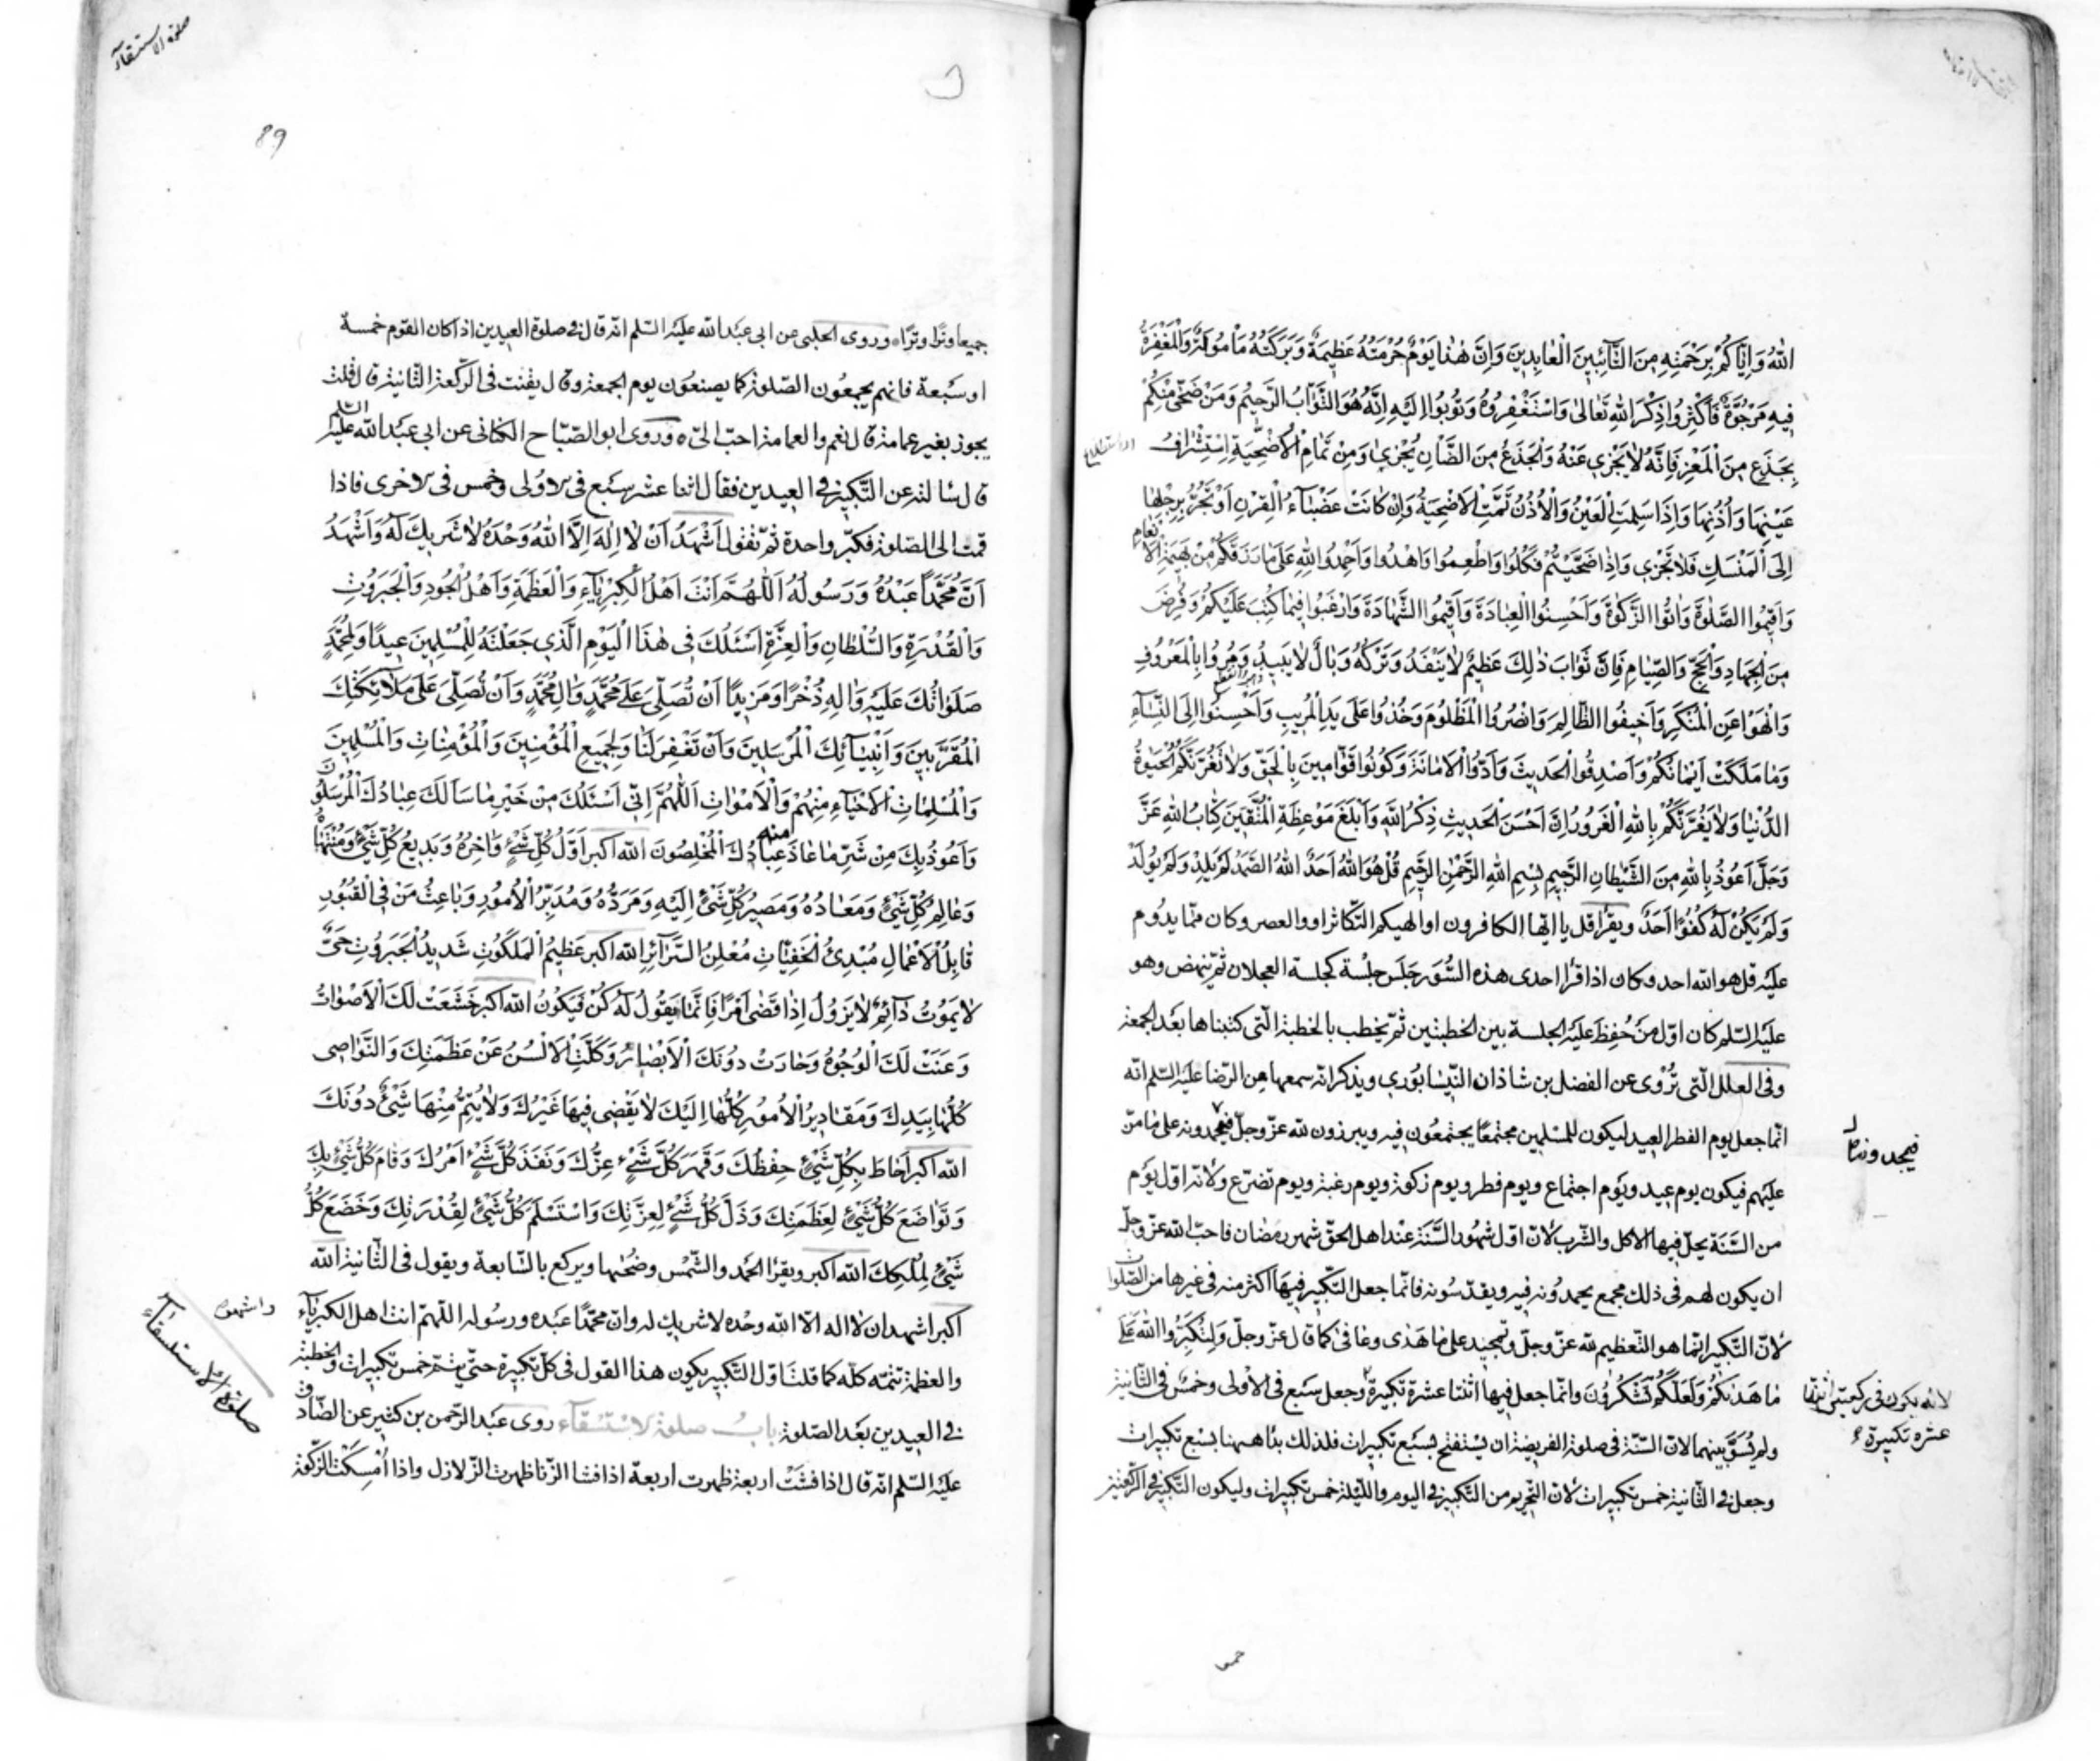 الله وَاِيَّاكُمْ بِرَحْمَتِهِ مِنَ التَّائِبِينَ الْعَابِدِينَ وَاِنَّ هٰذَا يَوْمٌ حُرْمَتُهُ عَظِيمَةٌ وَبَرَكَتُهُ مَأمُولَةٌ وَالْمَغْفِرَةُ
فِيهِ مَرْجُوَّةٌ فَاَكْثِرُوا ذِكْرَ اللهِ تَعَالىٰ وَاسْتَغْفِرُوهُ وَتُوبُوا اِلَيْهِ اِنَّهُ هُوَ التَّوَّابُ الرَّحِيمُ وَمَنْ ضَحّىٰ مِنْكُمْ
بِجَذَعٍ مِنَ الْمَعْزِ فَاِنَّهُ لَا يَجْزِي عَنْهُ وَالْجَذَعُ مِنَ الضَّأنِ يُجْزِي وَمِنْ تَمَامِ الْاُضْحِيَّةِ اِسْتِشْرَافُ
عَيْنِهَا وَاُذُنِهَا وَاِذَا سَلِمَتِ الْعَيْنُ وَالْاُذُنُ تَمَّتِ الْاُضْحِيَةُ وَاِنْ كَانَتْ عَضْبَاءَ الْقَرْنِ اَوْ تَجُرُّ بِرِجْلِهَا
اِلَى الْمَنْسَكِ فَلَا تَجْزِي وَاِذَا ضَحَّيْتُمْ فَكُلُوا وَاَطْعِمُوا وَاهْدُوا وَاحْمَدُوا اللهِ عَلىٰ مَا رَزَقَكُمْ مِنْ بَهِيمَةِ الْاَنْعَامِ
وَاَقِيمُوا الصَّلٰوةَ وَاٰتُوا الزَّكٰوةَ وَاَحْسِنُوا الْعِبَادَةَ وَاَقِيمُوا الشَّهَادَةَ وَارْغَبُوا فِيمَا كُتِبَ عَلَيْكُمْ وَفُرِضَ
مِنَ الْجِهَادِ وَالْحَجِّ وَالصِّيَامِ فَاِنَّ ثَوَابَ ذٰلِكَ عَظِيمٌ لَا يَنْفَدُ وَتَرْكُهُ وَبَالٌ لَا يَبِيدُ وَمُرُوا بِالْمَعْرُوفِ
وَانْهَوْا عَنِ الْمُنْكَرِ وَاَخِيفُوا الظَّالِمَ وَانْصُرُوا الْمَظْلُومَ وَخُذُوا عَلىٰ يَدِ الْمُرِيبِ وَاَحْسِنُوا اِلَى النِّسَاءِ
وَمَا مَلَكَتْ اَيْمَانُكُمْ وَاَصْدِقُوا الْحَدِيثَ وَاَدُّوا الْاَمَانَةَ وَكُونُوا قَوَّامِينَ بِالْحَقِّ وَلَا تَغُرَّنَّكُمُ الْحَيٰوةُ
الدُّنْيَا وَلَا يَغُرَّنَّكُمْ بِاللهِ الْغَرُورُ اِنَّ اَحْسَنَ الْحَدِيثِ ذِكْرُ اللهِ وَاَبْلَغَ مَوْعِظَةِ الْمُتَّقِينَ كِتَابُ اللهِ عَزَّ
وَجَلَّ اَعُوذُ بِاللهِ مِنَ الشَّيْطَانِ الرَّجِيمِ بِسْمِ اللهِ الرَّحْمٰنِ الرَّحِيمِ قُلْ هُوَ اللهُ اَحَدٌ اللهُ الصَّمَدُ لَمْ يَلِدْ وَلَمْ يُولَدْ
وَلَمْ يَكُنْ لَهُ كُفُوًا اَحَدٌ ويقرأ قل يا ايها الكافرون او الهيكم التّكاثر او والعصر وكان ممّا يدوم
عليه قل هو الله احد وكان اذا قرأ احدى هذه السُّوَر جَلَس جلسة كجلسة العجلان ثمّ ينهض وهو
عليه السّلم كان اوّل مَنْ حُفِظَ عليه الجلسة بين الخطبتين ثمّ يخطب بالخطبة الّتي كتبناها بعد الجمعة
وفي العلل الّتي تُرْوى عن الفضل بن شاذان النّيسابوري ويذكر انّه سمعها من الرّضا عليه السّلم انّه
انّما جعل يوم الفطر العيد ليكون للمسلمين مجتمعًا يجتمعون فيه ويبرزون لله عزّ وجلّ فيحمدونه على ما منّ
عليهم فيكون يوم عيد ويوم اجتماع ويوم فطر ويوم زكوة ويوم رغبة ويوم تضرّع ولأنه اوّل يوم
من السَّنَة يحلّ فيها الاكل والشّرب لأنّ اوّل شهور السَّنَة عند اهل الحقّ شهر رمضان فاحبّ الله عزّ وجلّ
ان يكون لهم في ذلك مجمع يحمدونه فيه ويقدّسونه فانّما جعل التّكبير فيها اكثر منه في غيرها من الصّلوات
لأنّ التّكبير انّما هو التّعظيم لله عزّ وجلّ وتمجيد على ما هَدٰى وعافىٰ كما قال عزّ وجلّ وَلِتُكَبِّرُوا اللهَ عَلىٰ
مَا هَدٰيكُمْ وَلَعَلَّكُمْ تَشْكُرُونَ وانّما جعل فيها اثنتا عشرة تكبيرة وجعل سبع في الأولى وخمس في الثّانية
ولم يُسَوَّ بينهما لانّ السّنّة في صلوة الفريضة ان يستفتح بسبع تكبيرات فلذلك بدأ ههنا بسبع تكبيرات
وجعل في الثّانية خمس تكبيرات لأنّ التّحريم من التّكبير في اليوم واللّيلة خمس تكبيرات وليكون التّكبير في الرّكعتين
لانه يكون في ركعتين اثنتا
عشرة تكبيرة
صلوة الاستسقاء
89
جميعا وترًا وترًا وروى الحلبي عن ابي عبد الله عليه السّلم انّه قال في صلوة العيدين اذا كان القوم خمسة
او سبعة فانهم يجمعون الصّلوة كما يصنعون يوم الجمعة وقال يقنت في الرّكعة الثّانية قال قلت
يجوز بغير عمامة قال نعم والعمامة احبّ اليّ وروى ابو الصّبّاح الكناني عن ابي عبد الله عليه السّلم
قال سالته عن التّكبير في العيدين فقال اثنا عشر سبع في الاولى وخمس في الاخرى فاذا
قمت الى الصّلوة فكبّر واحدة ثم تقول اَشْهَدُ اَنْ لَا اِلٰهَ اِلَّا اللهُ وَحْدَهُ لَا شَرِيكَ لَهُ وَاَشْهَدُ
اَنَّ مُحَمَّدًا عَبْدُهُ وَرَسُولُهُ اَللّٰهُمَّ اَنْتَ اَهْلُ الْكِبْرِيَاءِ وَالْعَظَمَةِ وَاَهْلُ الْجُودِ وَالْجَبَرُوتِ
وَالْقُدْرَةِ وَالسُّلْطَانِ وَالْعِزَّةِ اَسْئَلُكَ فِي هٰذَا الْيَوْمِ الَّذِي جَعَلْتَهُ لِلْمُسْلِمِينَ عِيدًا وَلِمُحَمَّدٍ
صَلَوَاتُكَ عَلَيْهِ وَاٰلِهِ ذُخْرًا وَمَزِيدًا اَنْ تُصَلِّيَ عَلىٰ مُحَمَّدٍ وَاٰلِ مُحَمَّدٍ وَاَنْ تُصَلِّيَ عَلىٰ مَلَائِكَتِكَ
الْمُقَرَّبِينَ وَاَنْبِيَائِكَ الْمُرْسَلِينَ وَاَنْ تَغْفِرَ لَنَا وَلِجَمِيعِ الْمُؤْمِنِينَ وَالْمُؤْمِنَاتِ وَالْمُسْلِمِينَ
وَالْمُسْلِمَاتِ الْاَحْيَاءِ مِنْهُمْ وَالْاَمْوَاتِ اَللّٰهُمَّ اِنِّي اَسْئَلُكَ مِنْ خَيْرِ مَا سَاَلَكَ عِبَادُكَ الْمُرْسَلُونَ
وَاَعُوذُ بِكَ مِنْ شَرِّ مَا عَاذَ منه عِبَادُكَ الْمُخْلِصُونَ الله اكبر اَوَّلُ كُلِّ شَيْءٍ وَاٰخِرُهُ وَبَدِيعُ كُلِّ شَيْءٍ وَمُنْتَهَاهُ
وَعَالِمُ كُلِّ شَيْءٍ وَمَعَادُهُ وَمَصِيرُ كُلِّ شَيْءٍ اِلَيْهِ وَمَرَدُّهُ وَمُدَبِّرُ الْاُمُورِ وَبَاعِثُ مَنْ فِي الْقُبُورِ
قَابِلُ الْاَعْمَالِ مُبْدِئُ الْخَفِيَّاتِ مُعْلِنُ السَّرَائِرِ الله اكبر عَظِيمُ الْمَلَكُوتِ شَدِيدُ الْجَبَرُوتِ حَيٌّ
لَا يَمُوتُ دَائِمٌ لَا يَزُولُ اِذَا قَضىٰ اَمْرًا فَاِنَّمَا يَقُولُ لَهُ كُنْ فَيَكُونُ الله اكبر خَشَعَتْ لَكَ الْاَصْوَاتُ
وَعَنَتْ لَكَ الْوُجُوهُ وَحَارَتْ دُونَكَ الْاَبْصَارُ وَكَلَّتِ الْاَلْسُنُ عَنْ عَظَمَتِكَ وَالنَّوَاصِي
كُلُّهَا بِيَدِكَ وَمَقَادِيرُ الْاُمُورِ كُلُّهَا اِلَيْكَ لَا يَقْضِي فِيهَا غَيْرُكَ وَلَا يَتِمُّ مِنْهَا شَيْءٌ دُونَكَ
الله اكبر اَحَاطَ بِكُلِّ شَيْءٍ حِفْظُكَ وَقَهَرَ كُلَّ شَيْءٍ عِزُّكَ وَنَفَذَ كُلَّ شَيْءٍ اَمْرُكَ وَقَامَ كُلُّ شَيْءٍ بِكَ
وَتَوَاضَعَ كُلُّ شَيْءٍ لِعَظَمَتِكَ وَذَلَّ كُلُّ شَيْءٍ لِعِزَّتِكَ وَاسْتَسْلَمَ كُلُّ شَيْءٍ لِقُدْرَتِكَ وَخَضَعَ كُلُّ
شَيْءٍ لِمُلْكِكَ الله اكبر ويقرأ الحمد والشّمس وضحٰيها ويركع بالسّابعة ويقول في الثّانية الله
اكبر اشهد ان لا اله الّا الله وحده لا شريك له وانّ محمّدًا عبده ورسوله اللّهمّ انت اهل الكبرياء
والعظمة تتمّه كلّه كما قلت اوّل التّكبير يكون هذا القول في كلّ تكبيرة حتّى يتمّ خمس تكبيرات والخطبة
في العيدين بعد الصّلوة باب صلوة الاستسقاء روى عبد الرّحمن بن كثير عن الصّادق
عليه السّلم انّه قال اذا فشت اربعة ظهرت اربعة اذا فشا الزّنا ظهرت الزّلازل واذا اُمْسِكَت الزّكوة
واشهد
صلوة الاستسقاء